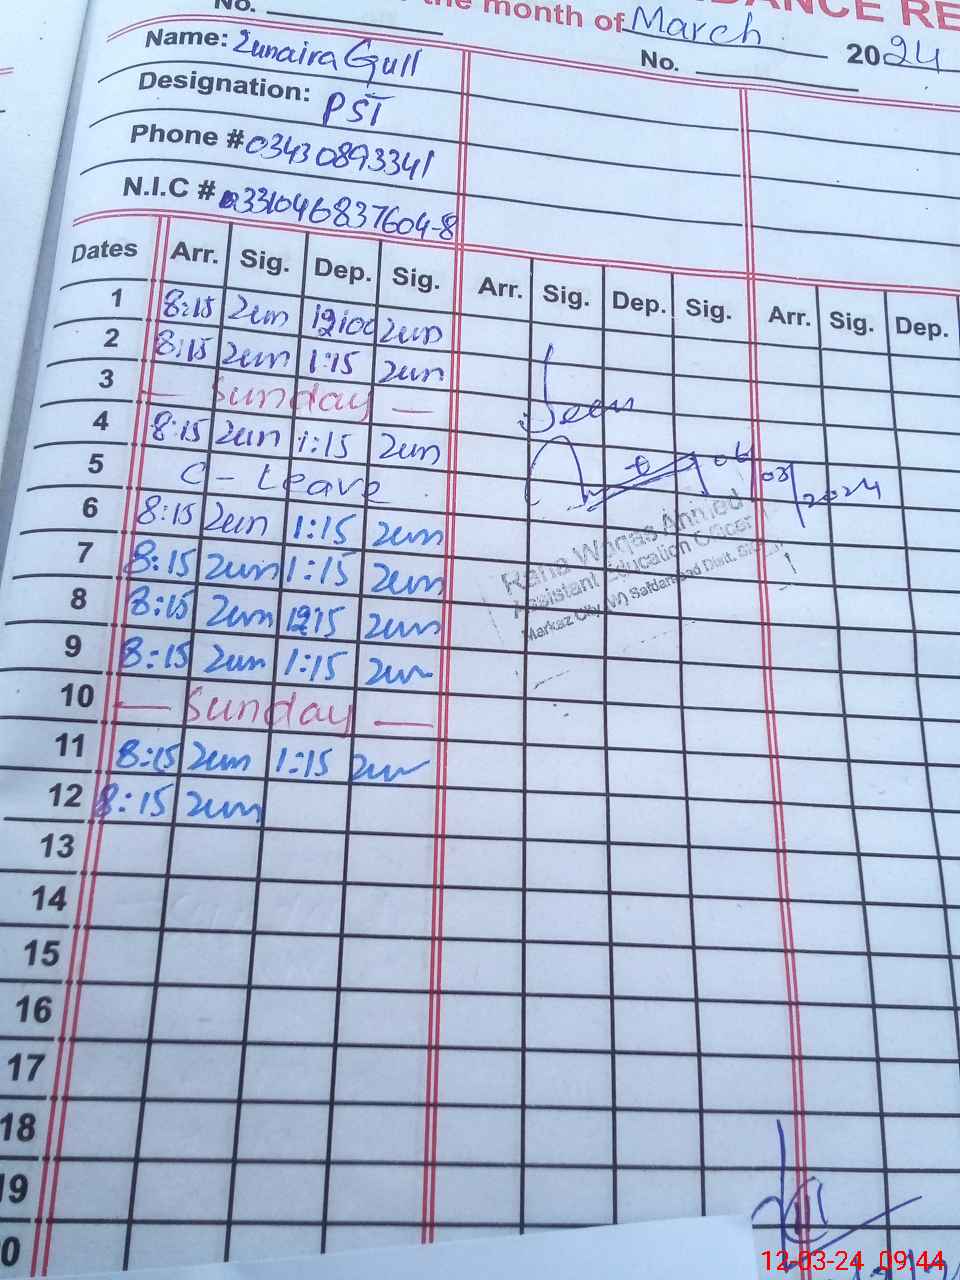 No.
the month of March 2024
No.
Name: Zunaira Gull
Designation: PST
Phone # 03430893341
N.I.C # 331046837604-8
Dates Arr. Sig. Dep. Sig. Arr. Sig. Dep. Sig. Arr. Sig. Dep.
1 8:15 Zun 12:00 Zun
2 8:15 Zun 1:15 Zun
3 — Sunday —
4 8:15 Zun 1:15 Zun
Seen
5 C - Leave
06/03/2024
6 8:15 Zun 1:15 Zun
Rana Waqas Ahmed
7 8:15 Zun 1:15 Zun
Assistant Education Officer
8 8:15 Zun 12:15 Zun
Markaz City
9 8:15 Zun 1:15 Zun
10 — Sunday —
11 8:15 Zun 1:15 Zun
12 8:15 Zun
13
14
15
16
17
18
19
0
12-03-24 09:44